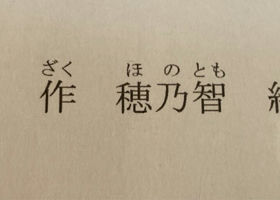 ざく ほのとも
作 穂乃智